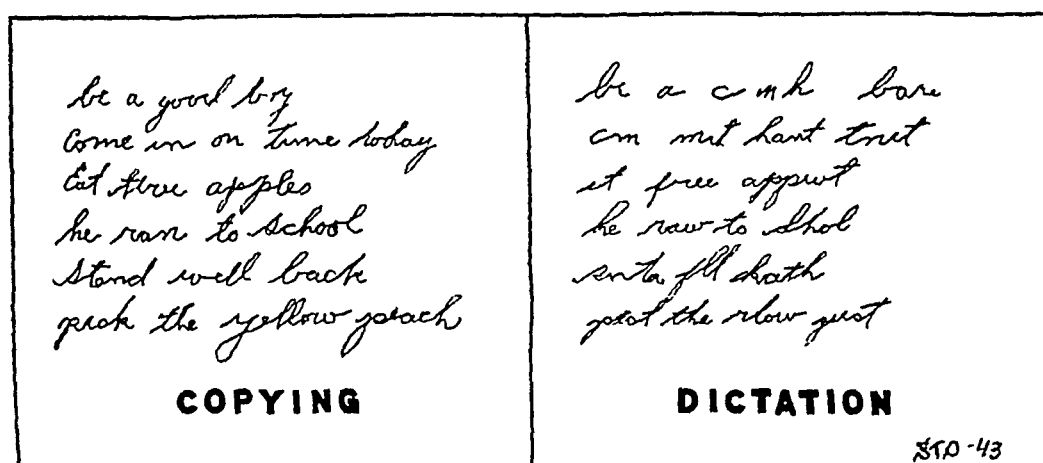 be a good boy
Come in on time today
Eat three apples
he ran to school
Stand well back
pick the yellow peach
COPYING
be a c mh bare
cm mit hant tnet
it free appeut
he raw to Shol
snta fll
the rlow
DICTATION
STD-43